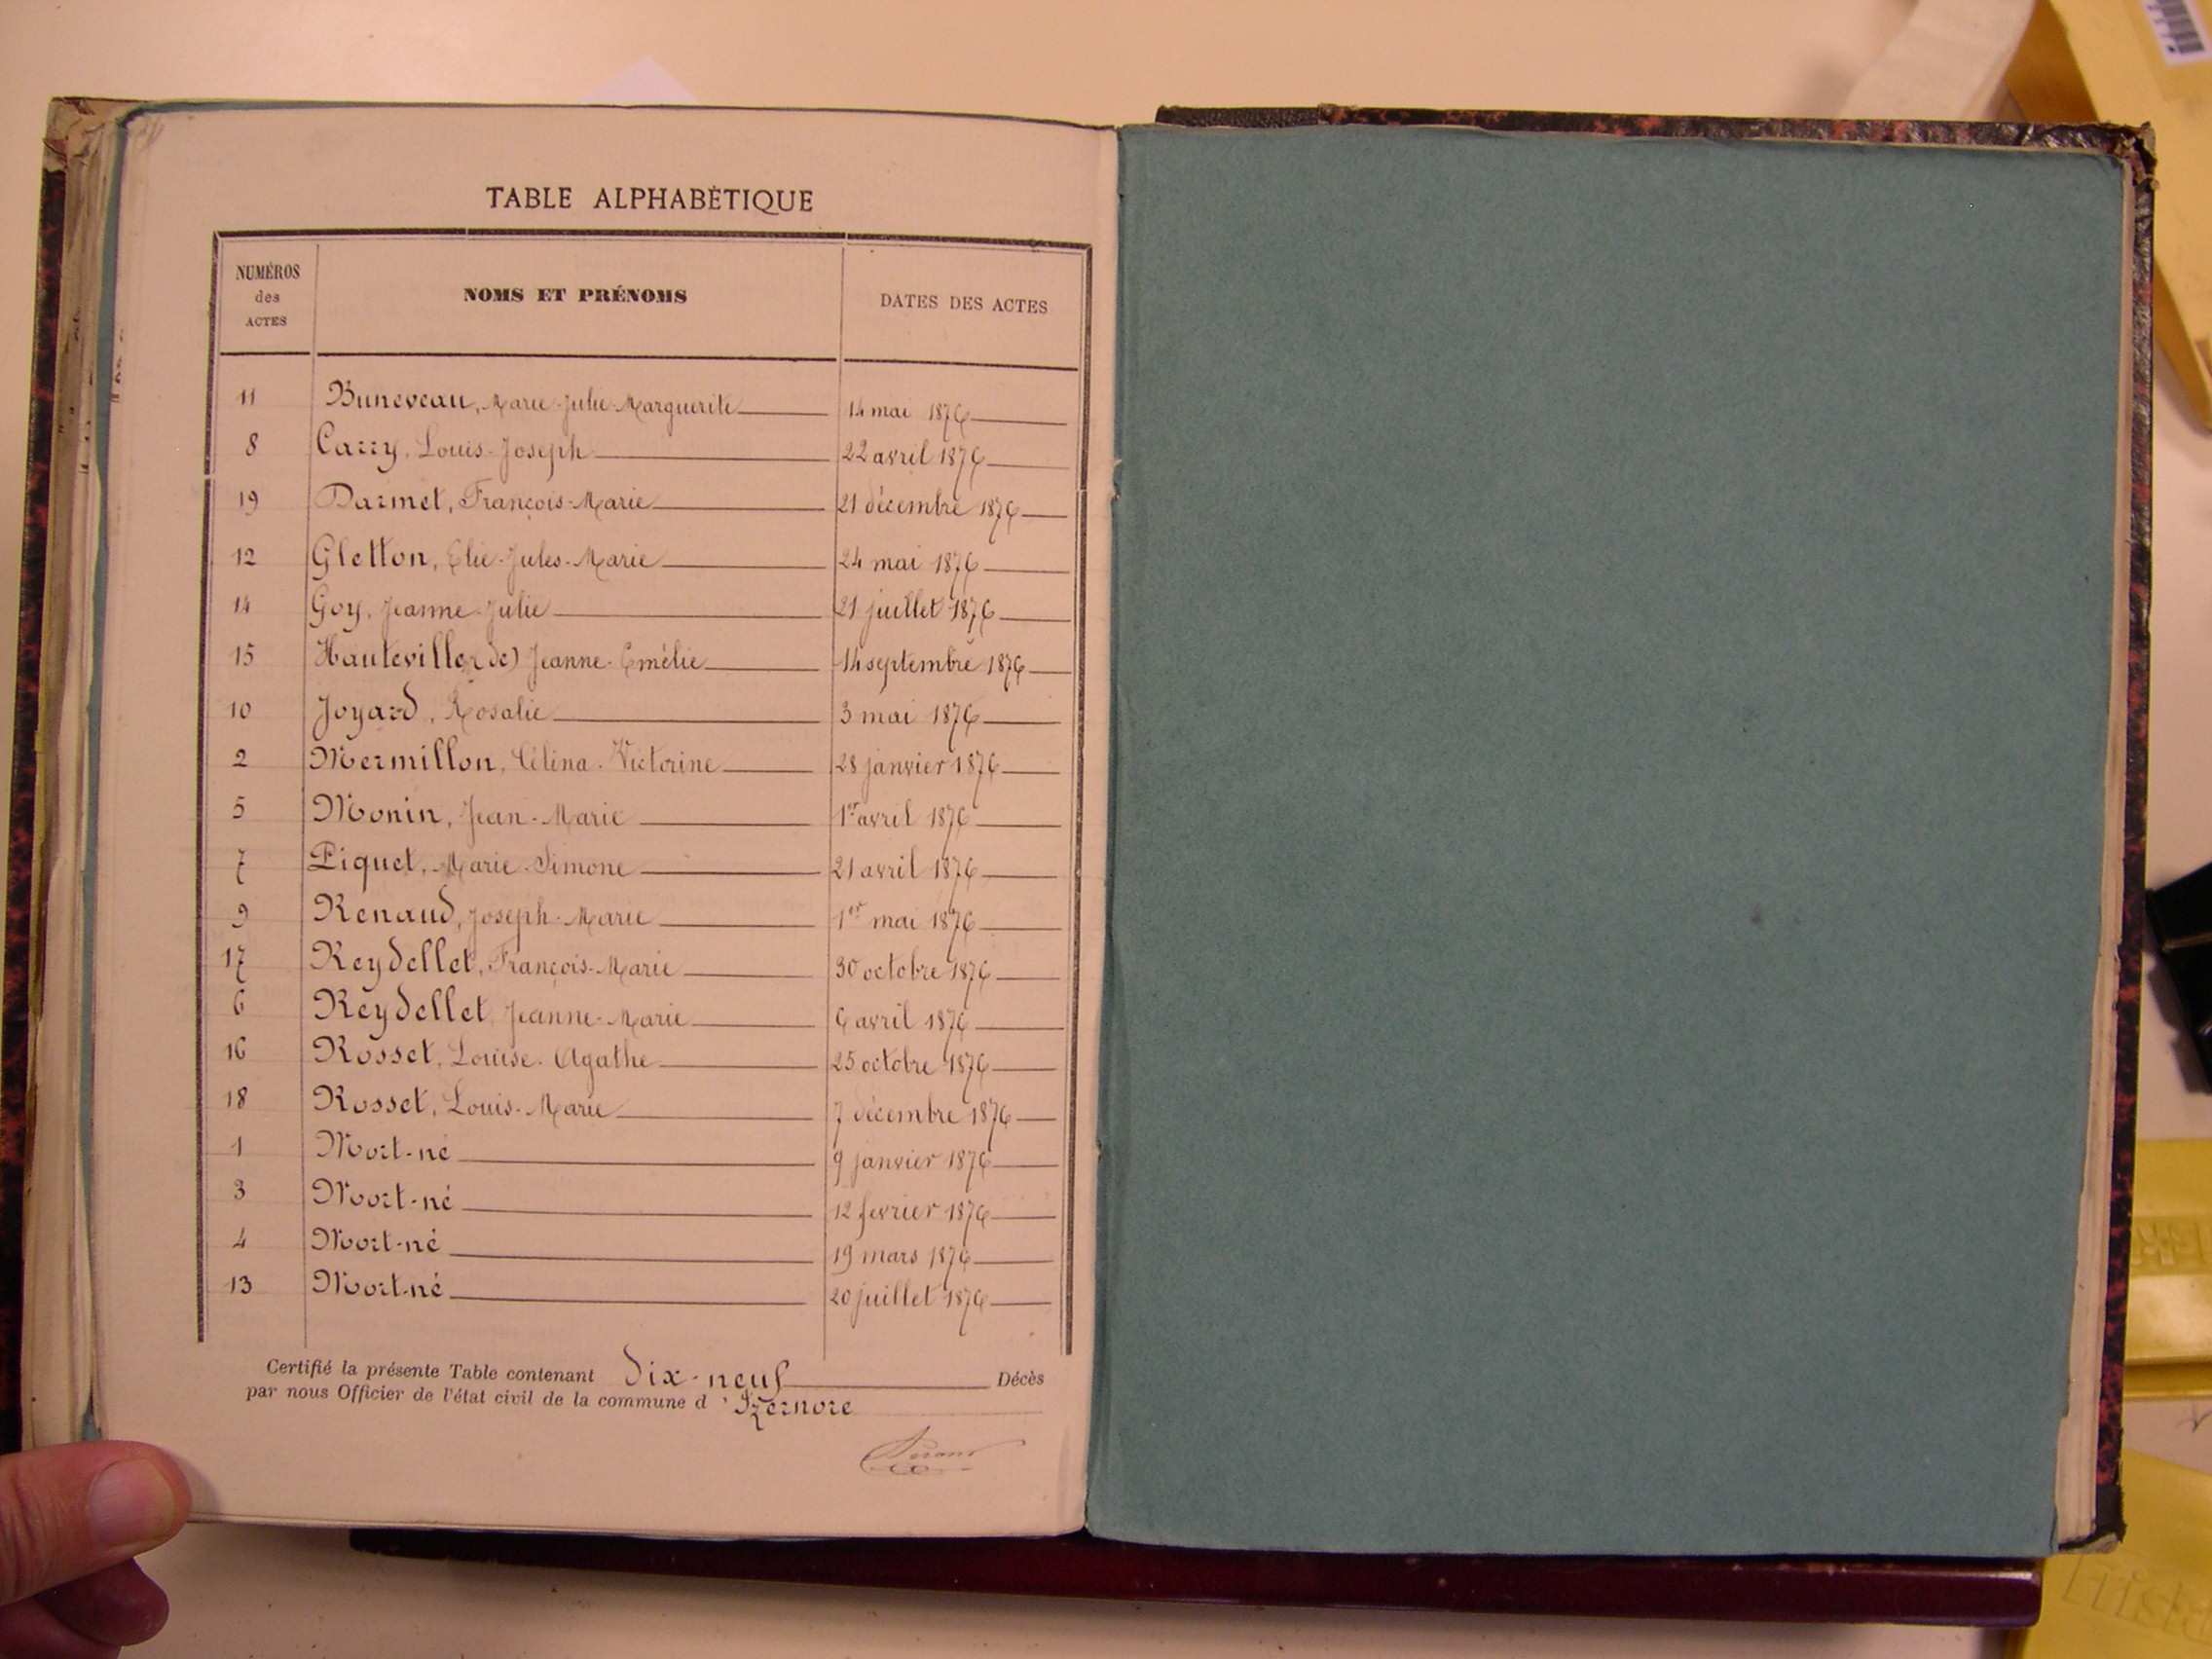 TABLE ALPHABÉTIQUE
NUMÉROS des ACTES NOMS ET PRÉNOMS DATES DES ACTES
11 Buneveau, Marie-Julie-Marguerite 14 mai 1876
8 Carry, Louis-Joseph 22 avril 1876
19 Darmet, François-Marie 21 décembre 1876
12 Gletton, Elie-Jules-Marie 24 mai 1876
14 Goy, Jeanne-Julie 21 juillet 1876
15 Hauteville (de) Jeanne-Emélie 14 septembre 1876
10 Joyard, Rosalie 3 mai 1876
2 Mermillon, Célina-Victorine 28 janvier 1876
5 Monin, Jean-Marie 1er avril 1876
7 Piquet, Marie-Simone 21 avril 1876
9 Renaud, Joseph-Marie 1er mai 1876
17 Reydellet, François-Marie 30 octobre 1876
6 Reydellet, Jeanne-Marie 6 avril 1876
16 Rosset, Louise-Agathe 25 octobre 1876
18 Rosset, Louis-Marie 7 décembre 1876
1 Mort-né 9 janvier 1876
3 Mort-né 12 fevrier 1876
4 Mort-né 19 mars 1876
13 Mort-né 20 juillet 1876
Certifié la présente Table contenant dix-neuf Décès
par nous Officier de l'état civil de la commune d'Izernore